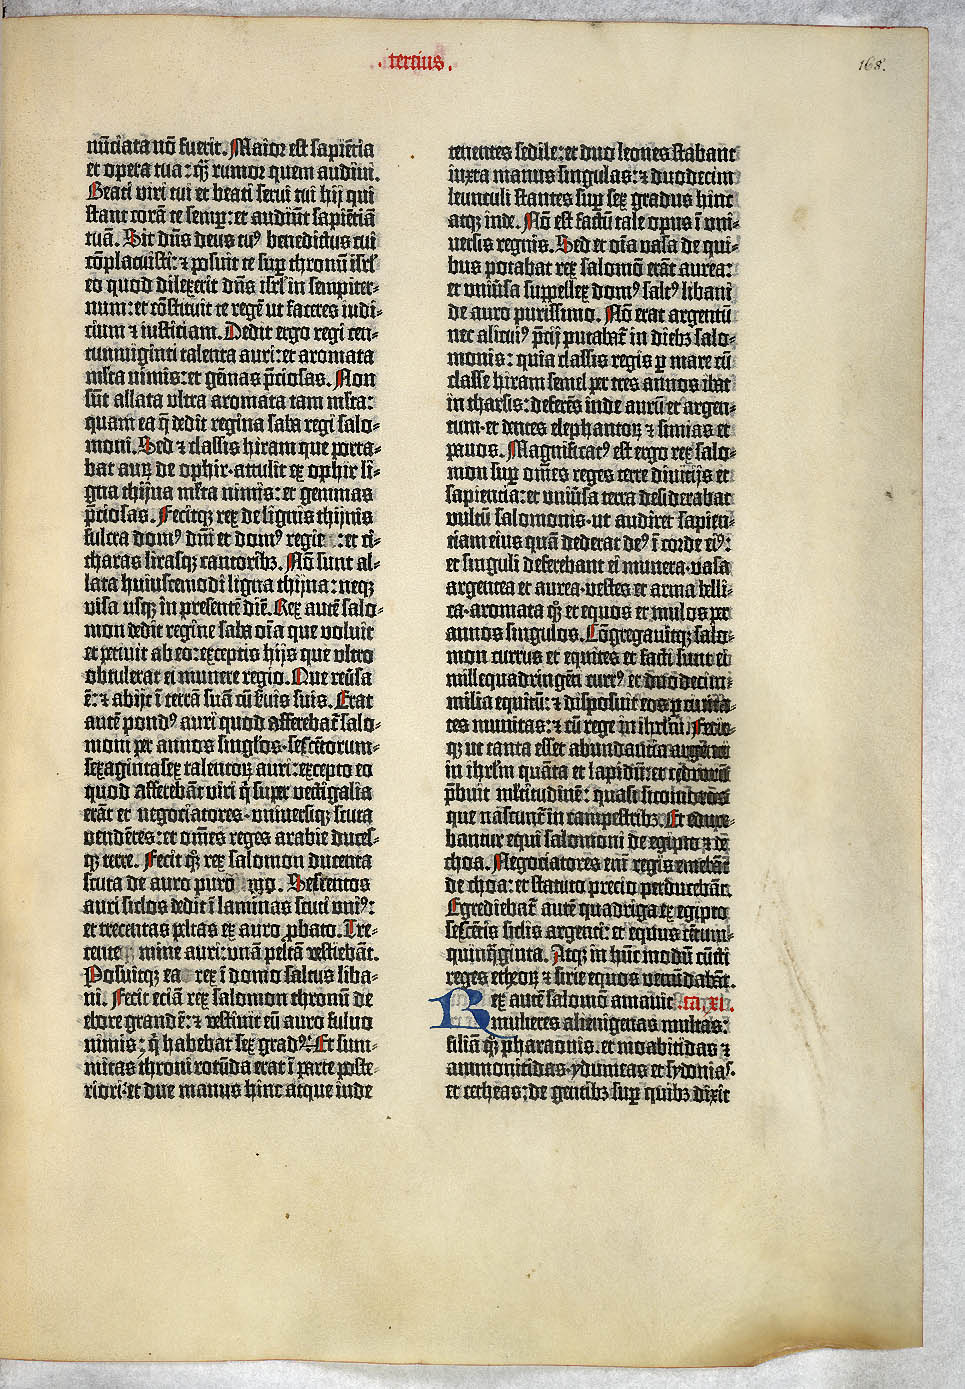 . tertius .
168.
nūciata nō fuerit. Maior est sapiētia
et opera tua: q̄ rumor quem audiui.
Beati viri tui et beati serui tui hij qui
stant corā te semꝑ: et audiūt sapiētiā
tuā. Sit dn̄s deus tuꝰ benedictus cui
cōplacuisti: ⁊ posuit te suꝑ thronū isrl̄
eo quod dilexerit dn̄s isrl̄ in sempiter-
num: et cōstituit te regē ut faceres iudi-
cium ⁊ iusticiam. Dedit ergo regi cen-
tumviginti talenta auri: et aromata
ml̄ta nimis: et gēmas p̄ciosas. Non
sūt allata ultra aromata tam ml̄ta:
quam ea q̄ dedit regina saba regi salo-
moni. Sed ⁊ classis hiram que porta-
bat auꝝ de ophir. attulit ex ophir li-
gna thijna ml̄ta nimis: et gemmas
p̄ciosas. Fecitqꝫ rex de lignis thijnis
fulcra domꝰ dn̄i et domꝰ regie : et ci-
tharas lirasqꝫ cantoribꝫ. Nō sunt al-
lata huiuscemodi ligna thijna: neqꝫ
visa usqꝫ in presentē diē. Rex autē salo-
mon dedit regine saba oīa que voluit
et petiuit ab eo: exceptis hijs que ultro
obtulerat ei munere regio. Que reūsa
ē: ⁊ abijt ī terrā suā cū ẜuis suis. Erat
autē pondꝰ auri quod afferebat̄ salo-
moni per annos singl̄os. sescētorum-
sexagintasex talentoꝝ auri: excepto eo
quod afferebāt viri q̄ super vectigalia
erāt et negociatores. universiqꝫ scuta
vendētes: et om̄es reges arabie duces-
qꝫ terre. Fecit qꝫ rex salomon ducenta
scuta de auro puro . Sescentos
auri siclos dedit ī laminas scuti vniꝰ:
et trecentas peltas ex auro ꝓbato. Tre-
cente mine auri: vnā peltā vestiebāt.
Posuitqꝫ ea rex ī domo saltus liba-
ni. Fecit eciā rex salomon thronū de
ebore grandē: ⁊ vestiuit eū auro fuluo
nimis: q̄ habebat sex gradꝰ. Et sum-
mitas throni rotūda erat ī parte poste-
riori. et due manus hinc atque inde
tenentes sedile: et duo leones stabant
iuxta manus singulas: ⁊ duodecim
leunculi stantes suꝑ sex gradus hinc
atqꝫ inde. Nō est factū tale opus ī vni-
uersis regnis. Sed et oīa vasa de qui-
bus potabat rex salomō erāt aurea:
et vniūsa suppellex domꝰ saltꝰ libani
de auro purissimo. Nō erat argentū
nec alicuiꝰ p̄cij putabat̄ in diebꝫ salo-
monis: quia classis regis ꝑ mare cū
classe hiram semel per tres annos ibat
in tharsis: deferēs inde aurū et argen-
tum. et dentes elephantoꝝ ⁊ simias et
pauos. Magnificatꝰ est ergo rex salo-
mon suꝑ om̄es reges terre diuitijs et
sapientia: et vniūsa terra desiderabat
vultū salomonis. ut audiret sapien-
ciam eius quā dederat deꝰ ī corde eiꝰ:
et singuli deferebant ei munera. vasa
argentea et aurea. vestes et arma belli-
ca. aromata qꝫ et equos et mulos per
annos singulos. Cōgregauitqꝫ salo-
mon currus et equites et facti sunt ei
millequadringēti currꝰ et duodecim
milia equitū: ⁊ disposuit eos ꝑ ciuita-
tes munitas: ⁊ cū rege in ihrl̄m. Fecit-
qꝫ ut tanta esset abundantia argenti
in ihrl̄m quāta et lapidū: et cedrorū
p̄buit ml̄titudinē: quasi sicomoros
que nascunt̄ in campestribꝫ. Et educe-
bantur equi salomoni de egipto ⁊ de
choa. Negociatores enī regis emebāt
de choa: et statuto precio perducebāt.
Egrediebat̄ autē quadriga ex egipto
sescētis siclis argenti: et equus cētum-
quinq̄ginta. Atqꝫ in hūc modū cūcti
reges etheoꝝ ⁊ sirie equos venūdabāt.
Rex autē salomō amauit .ca. XI.
mulieres alienigenas multas:
filiā qꝫ pharaonis. et moabitidas ⁊
ammonitidas. ydumeas et sydonias.
et cetheas: de gentibꝫ suꝑ quibꝫ dixit